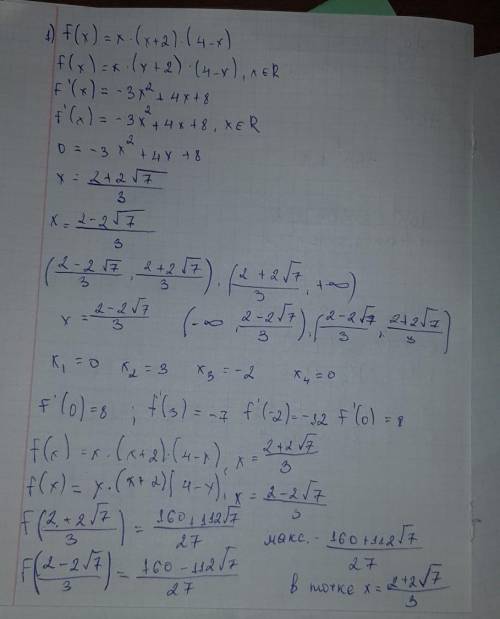 1) f(x) = x · (x+2) · (4-x)
f(x) = x · (x+2) · (4-x), x∈R
F'(x) = -3x² + 4x+8
F'(x) = -3x² + 4x+8, x∈R
0 = -3x² + 4x + 8
x = (2+2√7)/3
x = (2-2√7)/3
((2-2√7)/3, (2+2√7)/3), ((2+2√7)/3, +∞)
x = (2-2√7)/3 (-∞, (2-2√7)/3), ((2-2√7)/3, (2+2√7)/3)
x₁ = 0 x₂ = 3 x₃ = -2 x₄ = 0
f'(0) = 8 ; f'(3) = -7 f'(-2) = -12 f'(0) = 8
f(x) = x · (x+2) · (4-x), x = (2+2√7)/3
f(x) = x · (x+2)(4-x), x = (2-2√7)/3
f((2+2√7)/3) = (160+112√7)/27
макс. - (160+112√7)/27
F((2-2√7)/3) = (160-112√7)/27
в точке x = (2+2√7)/3